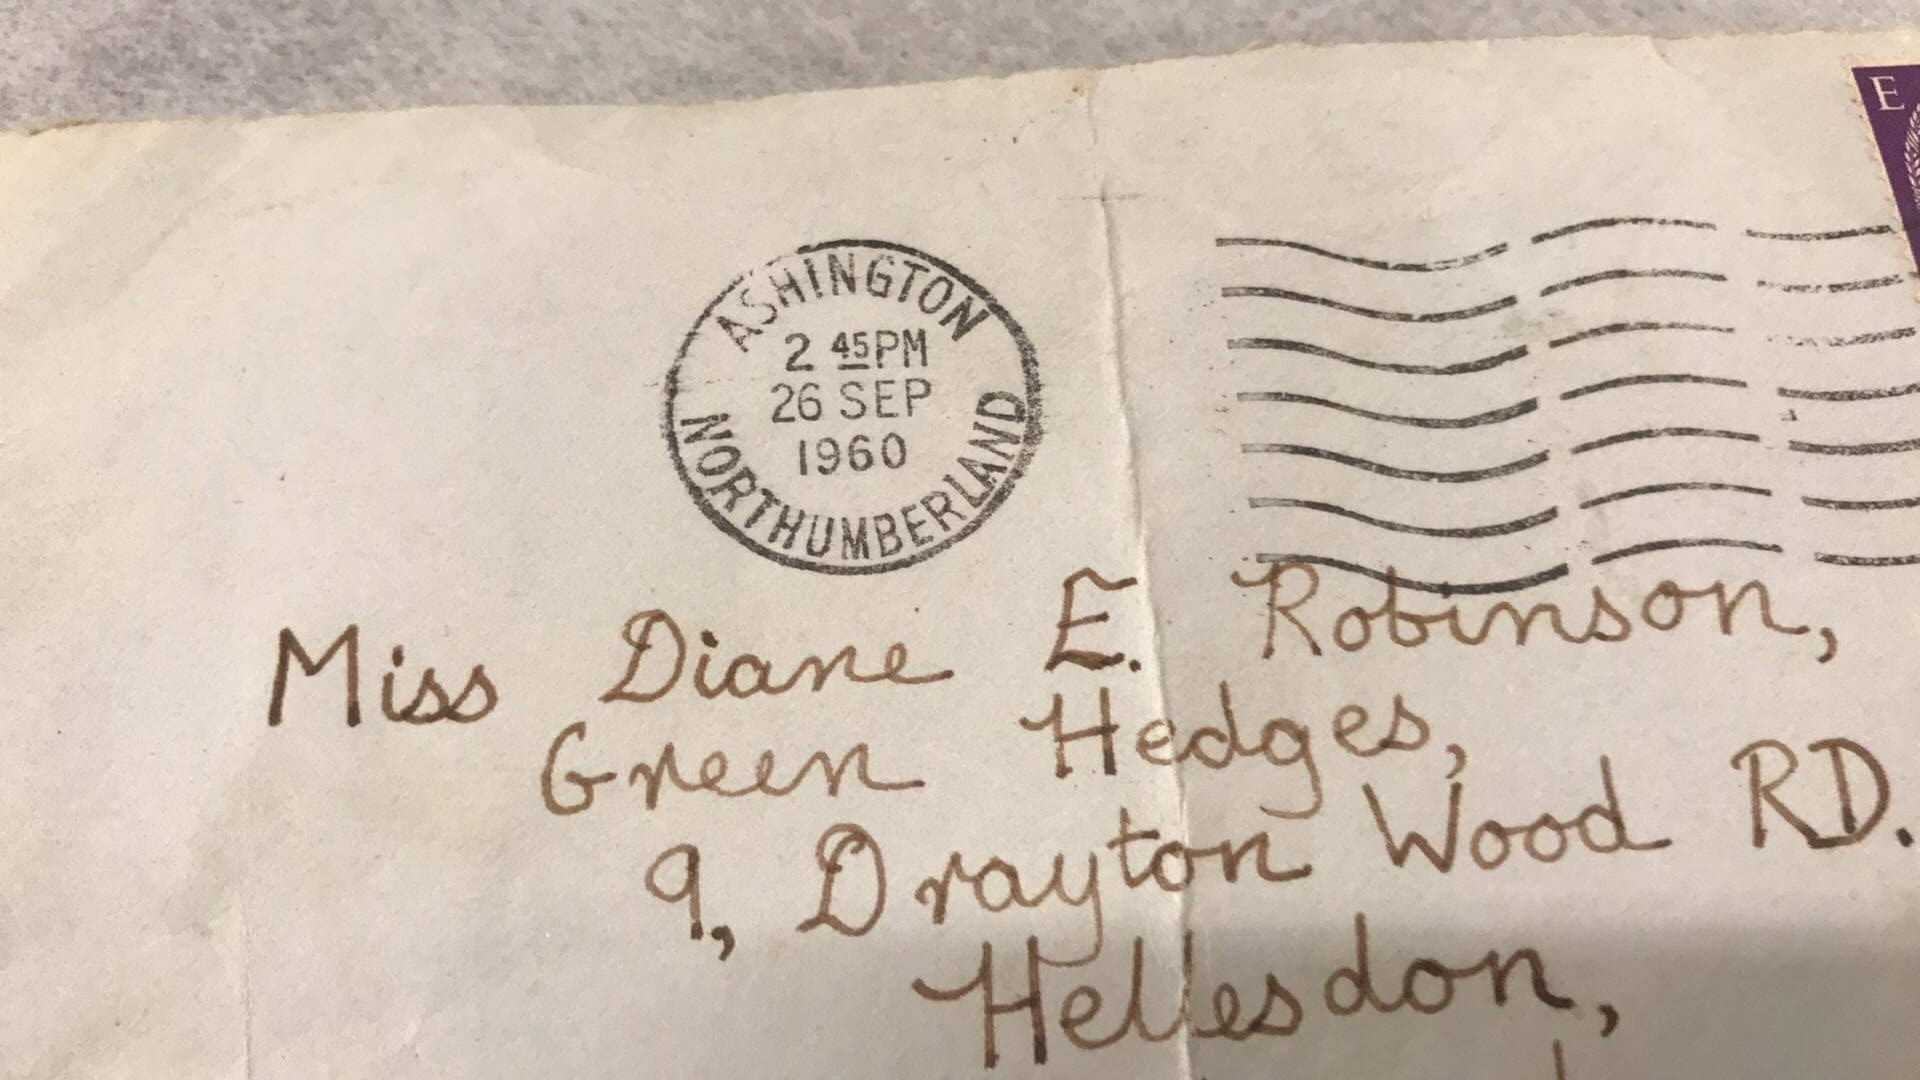 E
ASHINGTON
2 45PM
26 SEP
1960
NORTHUMBERLAND
Miss Diane E. Robinson,
Green Hedges,
9, Drayton Wood RD.
Hellesdon,